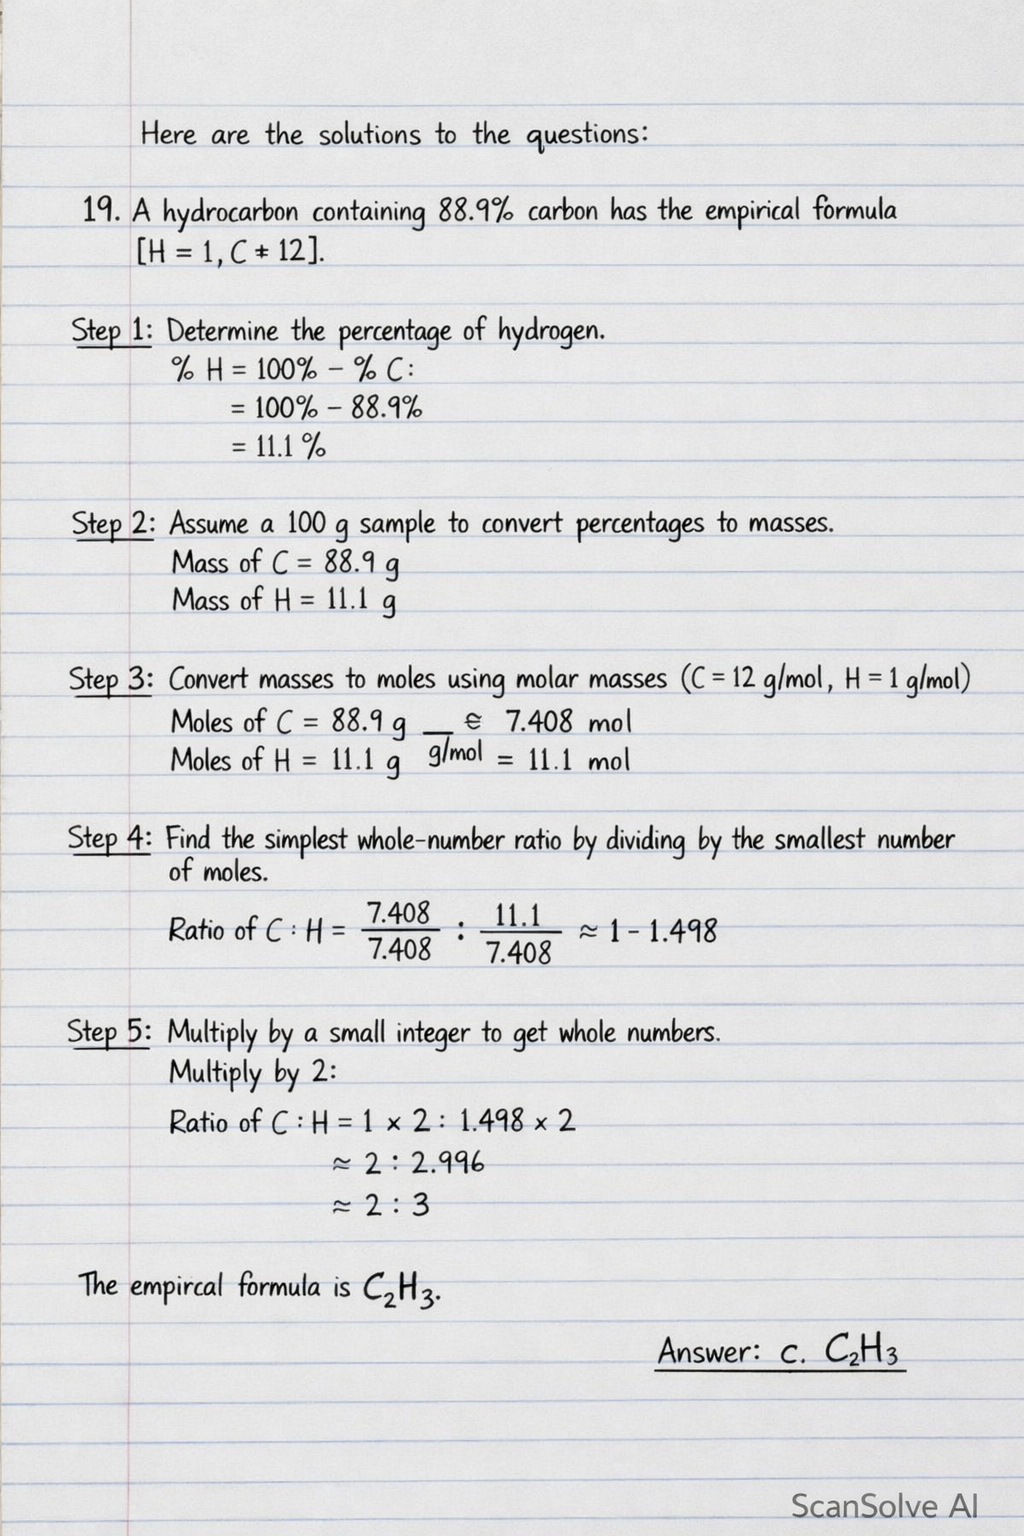 Here are the solutions to the questions:
19. A hydrocarbon containing 88.9% carbon has the empirical formula
[H = 1, C ≠ 12].
Step 1: Determine the percentage of hydrogen.
% H = 100% − % C:
= 100% − 88.9%
= 11.1 %
Step 2: Assume a 100 g sample to convert percentages to masses.
Mass of C = 88.9 g
Mass of H = 11.1 g
Step 3: Convert masses to moles using molar masses (C = 12 g/mol, H = 1 g/mol)
Moles of C = 88.9 g __ ∈ 7.408 mol
Moles of H = 11.1 g g/mol = 11.1 mol
Step 4: Find the simplest whole-number ratio by dividing by the smallest number
of moles.
Ratio of C : H = 7.408/7.408 : 11.1/7.408 ≈ 1 − 1.498
Step 5: Multiply by a small integer to get whole numbers.
Multiply by 2:
Ratio of C : H = 1 × 2 : 1.498 × 2
≈ 2 : 2.996
≈ 2 : 3
The empircal formula is C₂H₃.
Answer: c. C₂H₃
ScanSolve AI